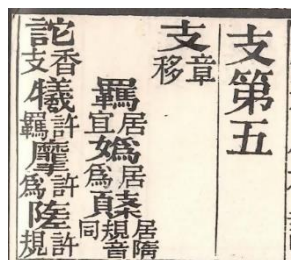 支第五
支章移
羈居宜嬀居為居隋規音同
詑香支犧許羈麾許為許規